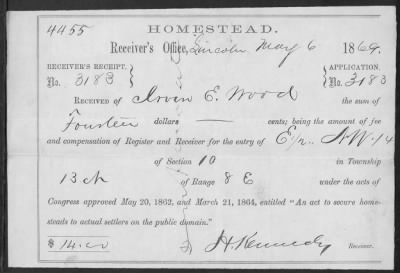 4455
HOMESTEAD.
Receiver's Office, Lincoln May 6 1869.
RECEIVER'S RECEIPT, APPLICATION,
No. 3183 No. 3183
RECEIVED OF Irvin E. Wood the sum of
Fourteen dollars cents; being the amount of fee
and compensation of Register and Receiver for the entry of E/2 .. N.W. 1/4
of Section 10 in Township
13 N of Range 8 E under the acts of
Congress approved May 20, 1862, and March 21, 1864, entitled "An act to secure home-
steads to actual settlers on the public domain."
$ 14.00 Kennedy Receiver.